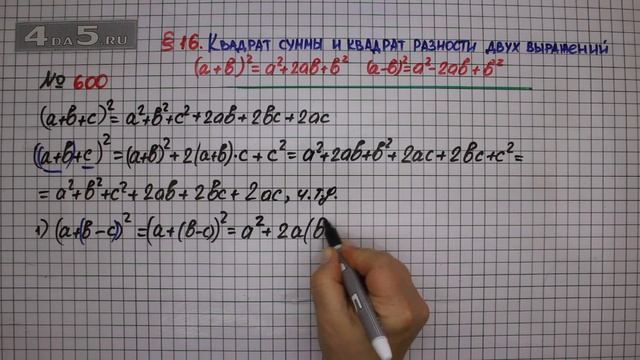 4DA5.RU
§ 16. Квадрат суммы и квадрат разности двух выражений
(a+b)²=a²+2ab+b² (a-b)²=a²-2ab+b²
№ 600
(a+b+c)²=a²+b²+c²+2ab+2bc+2ac
((a+b)+c)²=(a+b)²+2(a+b)·c+c²=a²+2ab+b²+2ac+2bc+c²=
=a²+b²+c²+2ab+2bc+2ac, ч.т.д.
1) (a+(b-c))²=(a+(b-c)²=a²+2a(b